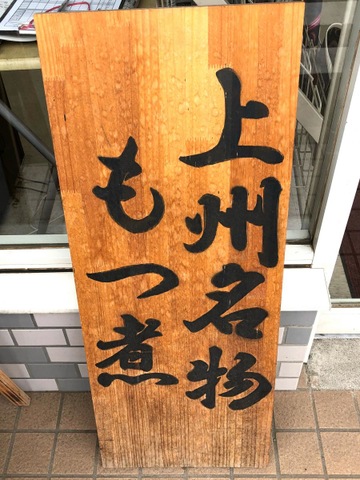 上州名物
もつ煮